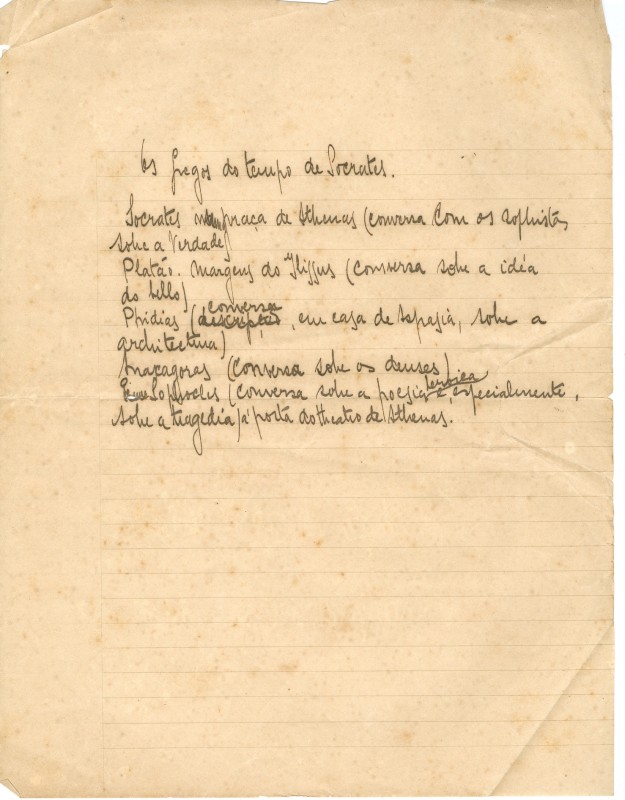 Os gregos do tempo de Socrates.
Socrates praça de Athenas (conversa com os sophistas,
sobre a Verdade)
Platão. Margens do Ilissus (conversa sobre a idéa
do bello)
conversa
Phidias (descripção, em casa de Aspasia, sobre a
architectura)
Anaxagoras (conversa sobre os deuses)
heroica
Sophocles (conversa sobre a poesia e, especialmente,
sobre a tragedia) á porta do theatro de Athenas.